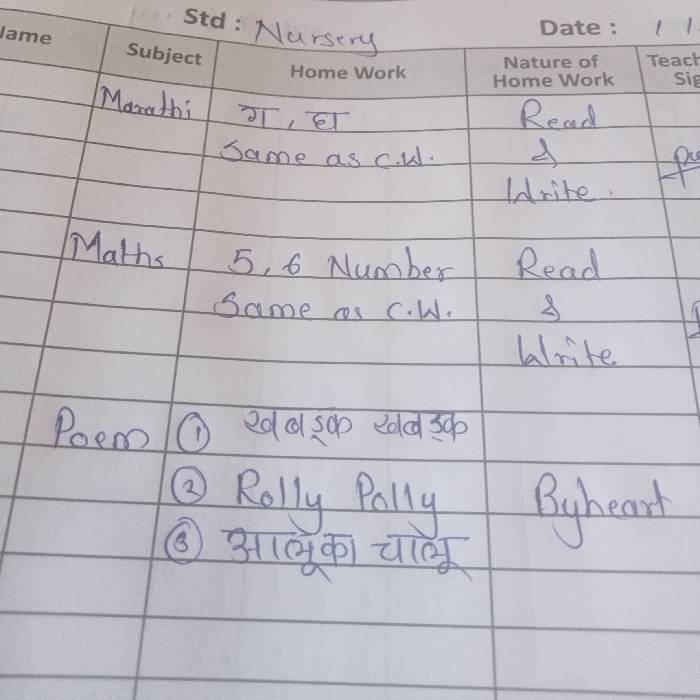 Std : Nursery Date : / /
Name Subject Home Work Nature of Home Work Teach Sig
Marathi ग, घ Read
Same as C.W. &
Write.
Maths 5, 6 Number Read
Same as C.W. &
Write
Poem ① खबडक खबडक
② Rolly Polly Byheart
③ आलूका चालू